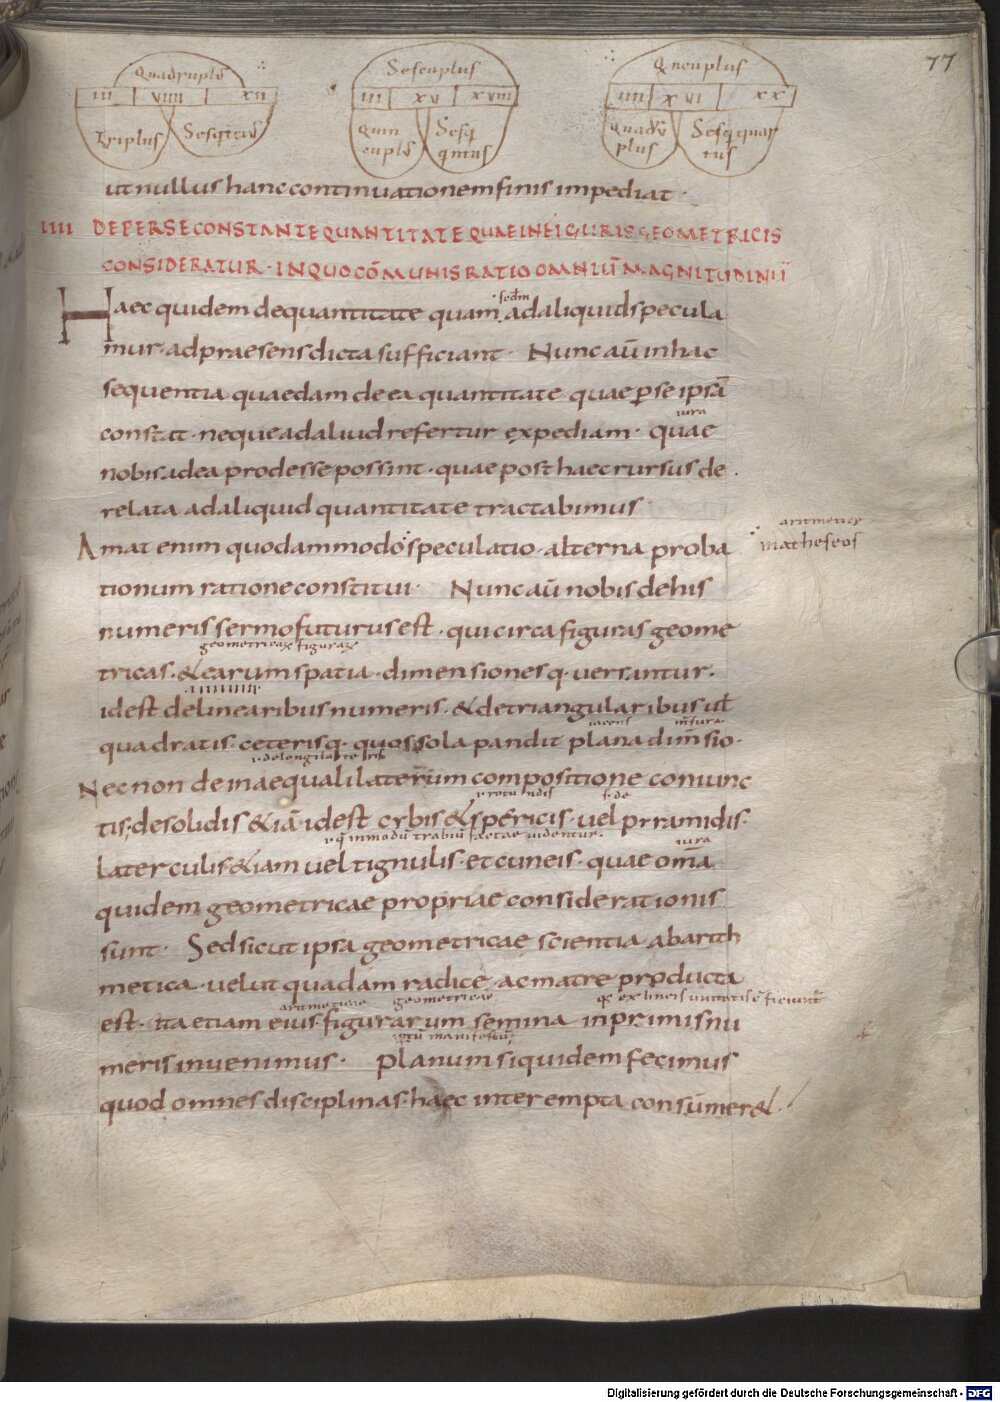 77
Quadruplꝰ
III VIIII XII
Triplus Sesq̇tciꝰ
Sescuplus
III XV XVIII
Quin Sesq̇
cuplꝰ qntus
Qncuplus
IIII XVI XX
Quadrꝰ Sesq̇ quar
plus tus
ut nullus hanc continuationem finis impediat·
IIII DE PER SE CONSTANTE QUANTITATE QUAE IN FIGURIS GEOMETRICIS
CONSIDERATUR· IN QUO CŌMUNIS RATIO OMNIŪ MAGNITUDINŪ
Haec quidem de quantitate quam ad aliquid specula
mur· ad praesens dicta sufficiant· Nunc aū in hac
sequentia quaedam de ea quantitate quae ꝑ se ipsā
iura
constat· neque ad aliud refertur expediam· quae
nobis ad ea prodesse possint· quae post haec rursus de
relata ad aliquid quantitate tractabimus·
aritmetice
matheseos
Amat enim quodammodo speculatio· alterna proba
tionum ratione constitui· Nunc aū nobis de his
numeris sermo futurus est· qui circa figuras geome
geometricae figurae
tricas· & earum spatia· dimensiones q· versantur·
id est de linearibus numeris· & de triangularibus ul̄
iacens m̄sura
quadratis· ceterisq· quos sola pandit plana dim̄sio·
Nec non de inaequali laterum compositione coniunc
tis· de solidis &iā id est cybis & spericis· uel pyramidis·
laterculis &iam uel tignulis· et cuneis· quae om̄a
quidem geometricae propriae considerationis
sunt· Sed sicut ipsa geometricae scientia ab arith
metica· velut quadam radice· ac matre producta
aritmeticae geometricae
est· ita etiam eius figurarum semina in primis nu
meris invenimus· Planum siquidem fecimus
quod omnes disciplinas haec interempta consūmer&·
Digitalisierung gefördert durch die Deutsche Forschungsgemeinschaft - DFG